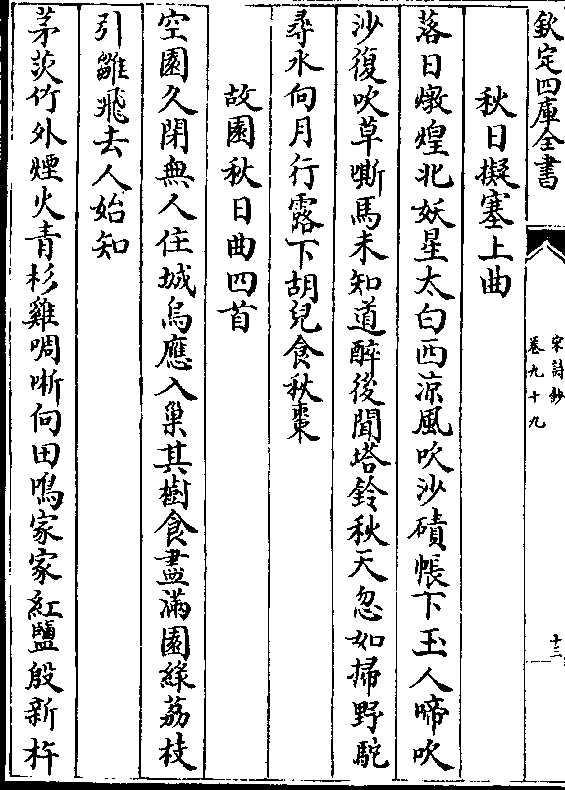 欽定四庫全書
宋詩鈔
卷九十九
十三
秋日擬塞上曲
落日燉煌北妖星太白西涼風吹沙磧帳下玉人啼吹
沙復吹草嘶馬未知道醉後聞塔鈴秋天忽如掃野駝
尋水向月行露下胡兒食秋棗
故園秋日曲四首
空園久閉無人住城烏應入巢其樹食盡滿園綠荔枝
引雛飛去人始知
茅茨竹外煙火青杉雞啁哳向田鳴家家紅鹽殷新杵